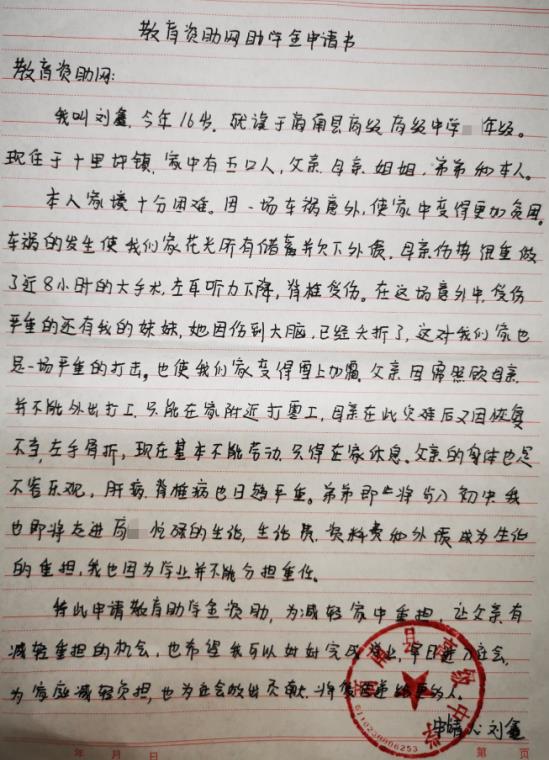 教育资助网助学金申请书
教育资助网:
我叫刘鑫,今年16岁,就读于商南县高级高级中学 年级。
现住于十里坪镇,家中有五口人,父亲,母亲,姐姐,弟弟和本人。
本人家境十分困难。因一场车祸意外,使家中变得更加贫困。
车祸的发生使我们家花光所有储蓄并欠下外债,母亲伤势很重做
了近8小时的大手术,左耳听力下降,脊椎受伤。在这场意外中,受伤
严重的还有我的妹妹,她因伤到大脑,已经夭折了,这对我们家也
是一场严重的打击。也使我们家变得雪上加霜,父亲因需照顾母亲
并不能外出打工,只能在家附近打零工,母亲在此灾难后又因恢复
不当,左手骨折,现在基本不能劳动,只得在家休息。父亲的身体也是
不容乐观,肝病,脊椎病也日趋严重。弟弟即将步入初中,我
也即将走进高 忙碌的生活,生活费,资料费和外债成为生活
的重担,我也因为学业并不能分担重任。
特此申请教育助学金资助,为减轻家中重担,让父亲有
减轻重担的机会,也希望我可以好好完成学业,早日进入社会,
为家庭减轻负担,也为社会做出贡献,将
申请人刘鑫
商南县高级中学
6110238806253
年 月 日 第 页